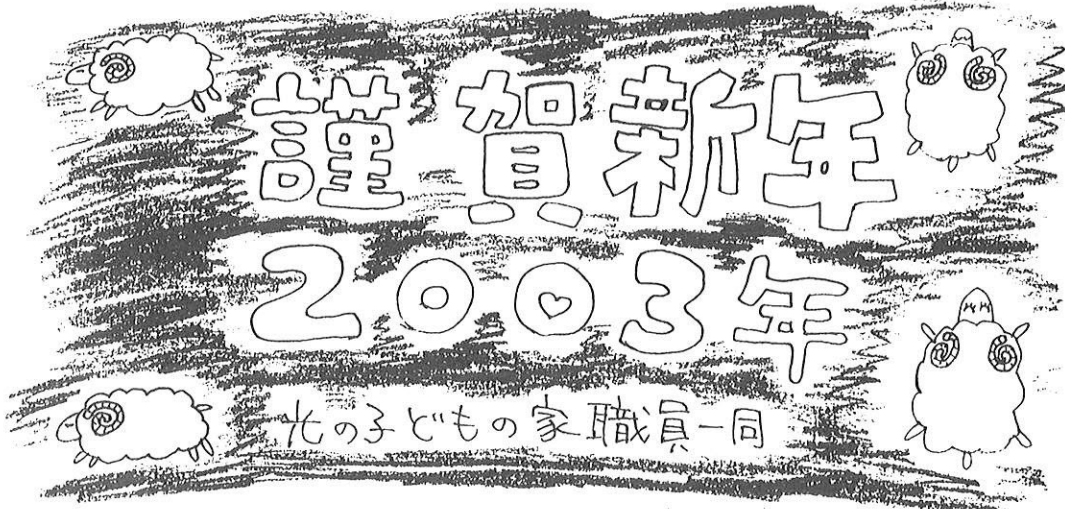 謹賀新年
2003年
光の子どもの家職員一同